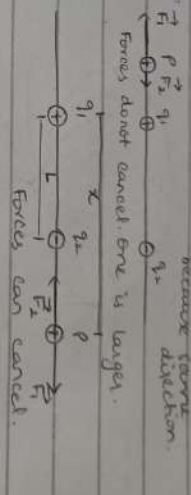 because same
direction.
F₁ P F₂ q₁ q₂
Forces do not cancel. One is larger.
x
q₁ q₂ P
L F₂ F₁
Forces can cancel.